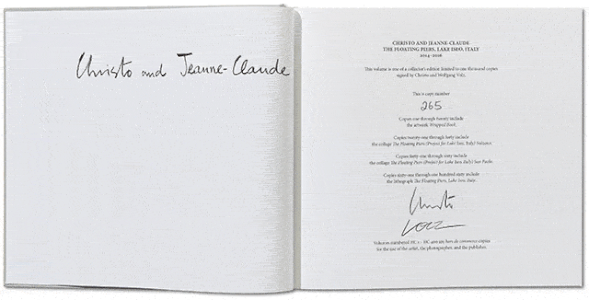 Christo and Jeanne-Claude
CHRISTO AND JEANNE-CLAUDE
THE FLOATING PIERS, LAKE ISEO, ITALY
2014–2016
This volume is one of a collector's edition limited to one thousand copies
signed by Christo and Wolfgang Volz.
This is copy number
265
Copies one through twenty include
the artwork Wrapped Book.
Copies twenty-one through forty include
the collage The Floating Piers (Project for Lake Iseo, Italy)
Copies forty-one through sixty include
the collage The Floating Piers (Project for Lake Iseo, Italy) San Paolo.
Copies sixty-one through one hundred sixty include
the lithograph The Floating Piers, Lake Iseo, Italy.
Christo
VOLZ
Volumes numbered HC 1 – HC are hors de commerce copies
for the use of the artist, the photographer, and the publisher.